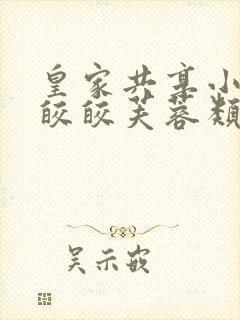 皇家共享小
皎皎芙蓉颜
吴示嵌